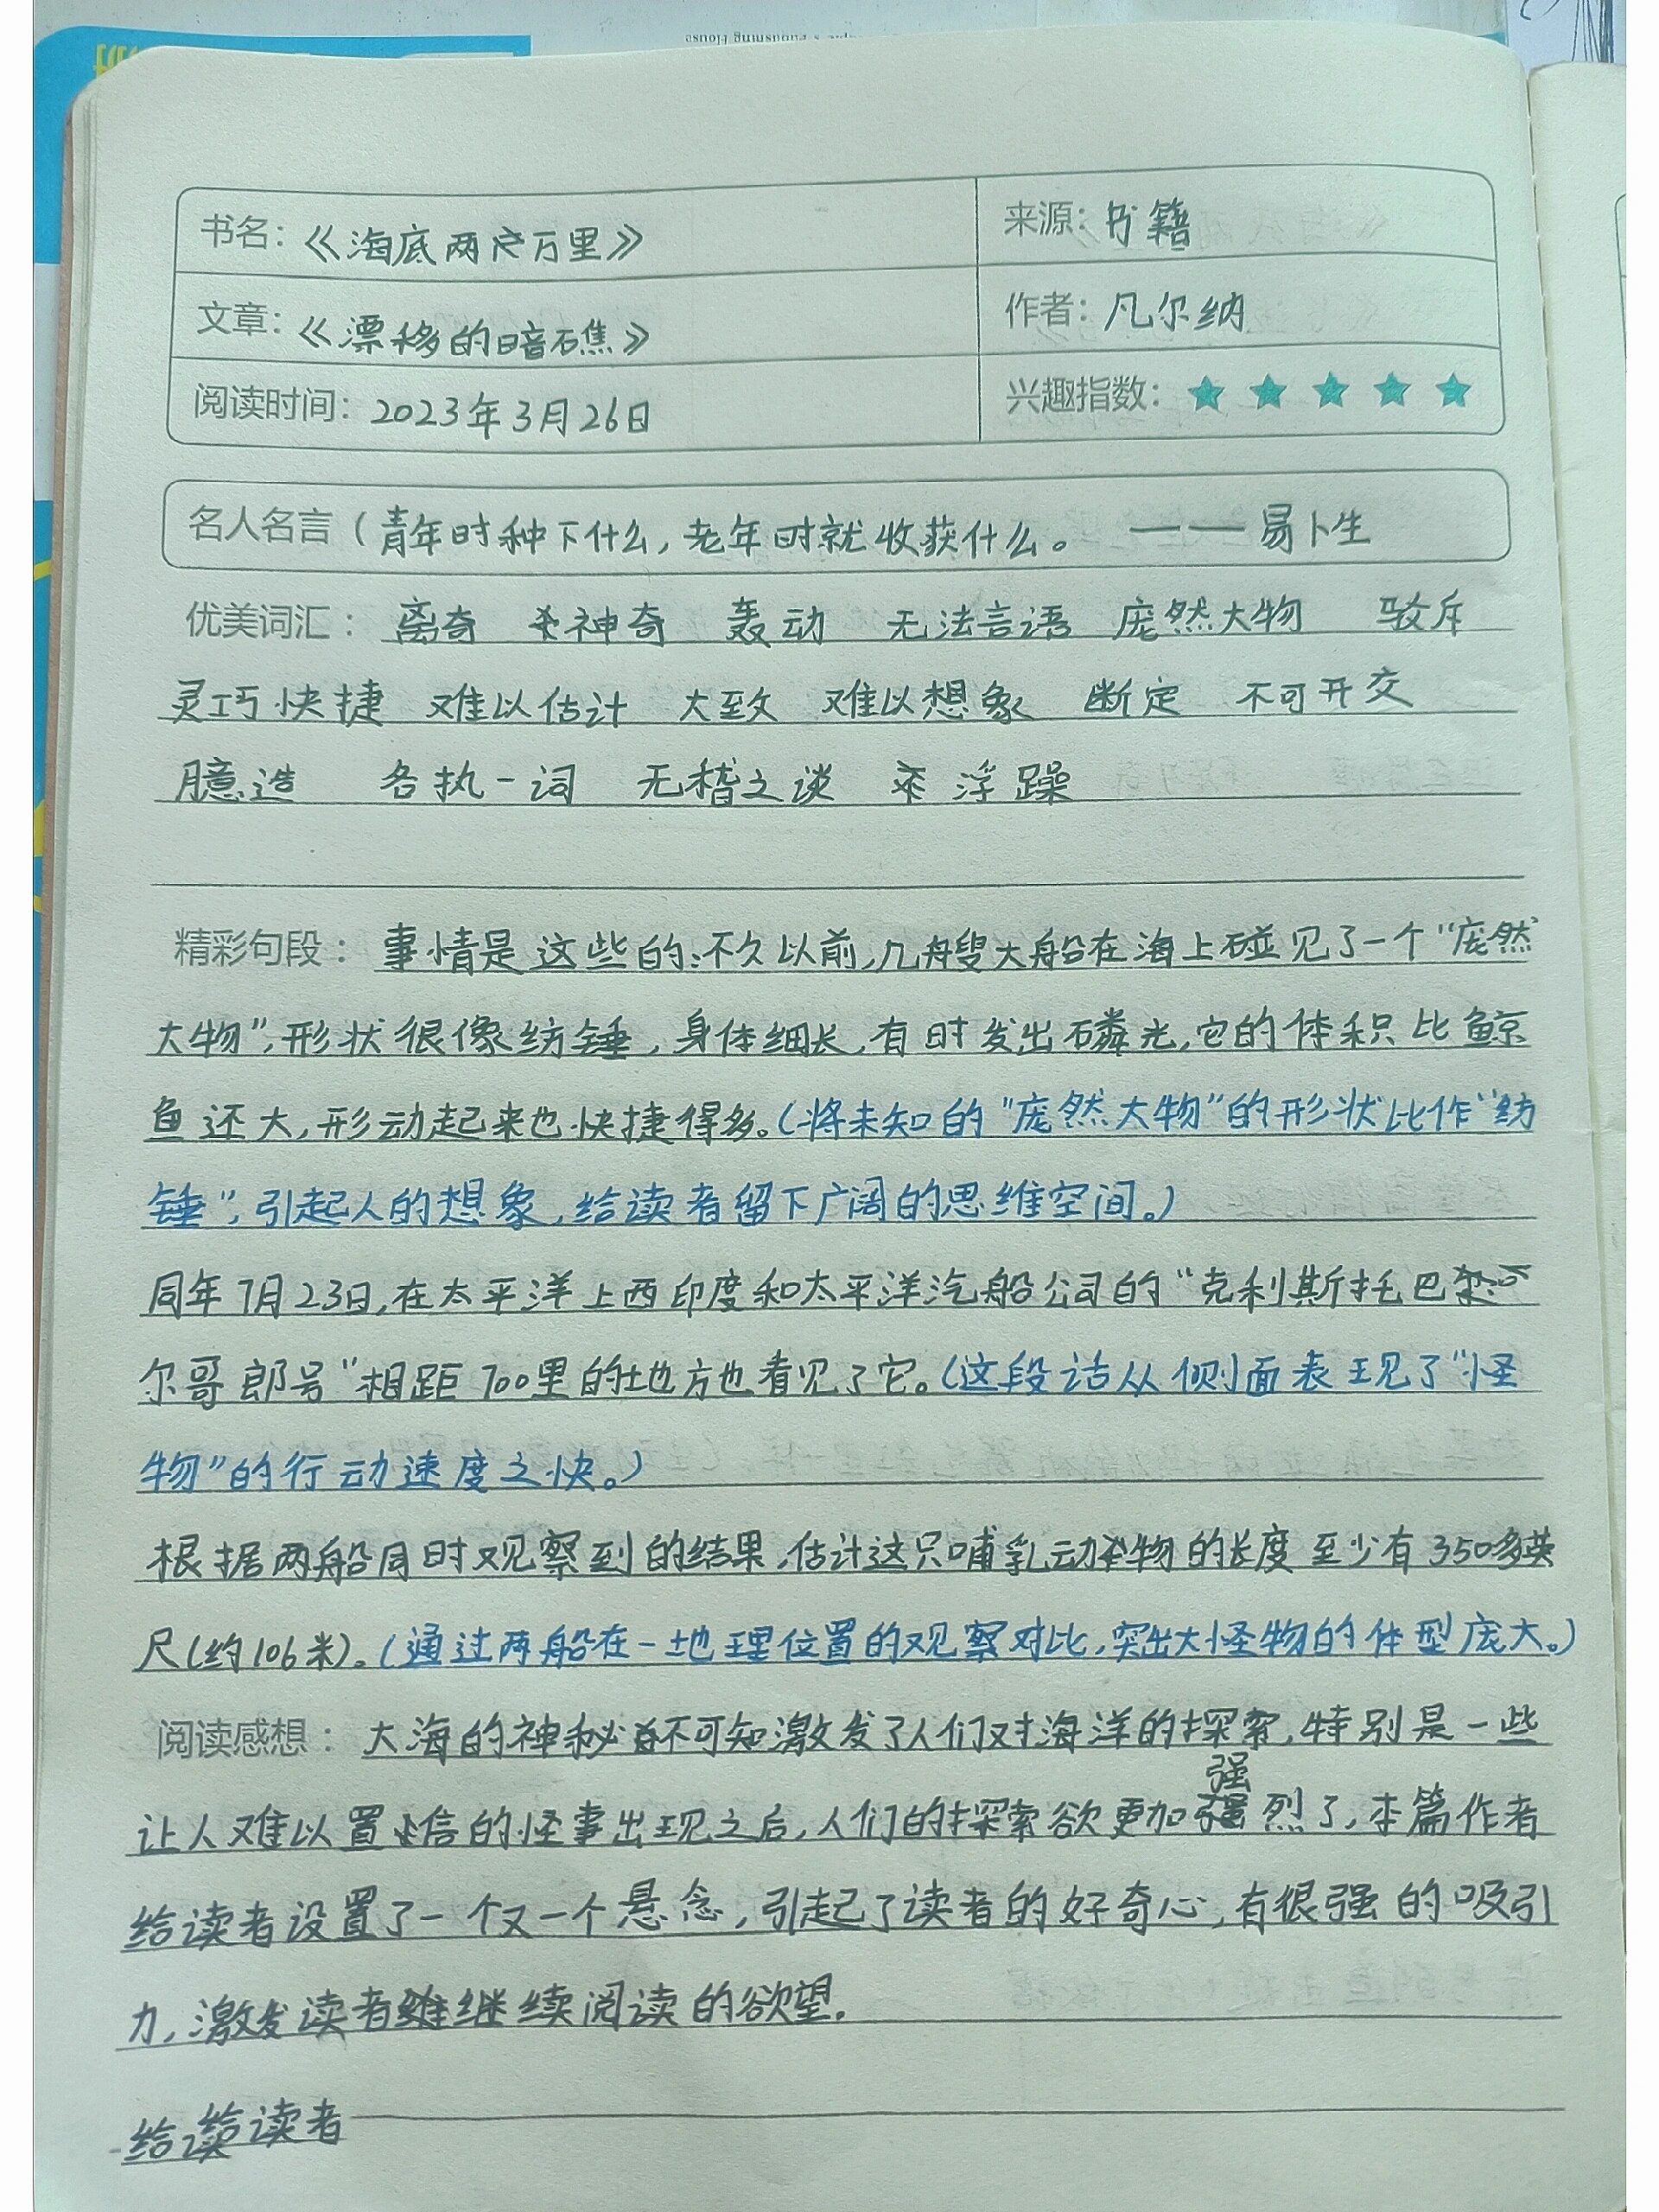 书名：《海底两万里》 来源：书籍
文章：《漂移的暗礁》 作者：凡尔纳
阅读时间：2023年3月26日 兴趣指数：★ ★ ★ ★ ★
名人名言（青年时种下什么，老年时就收获什么。 ——易卜生
优美词汇： 离奇 神奇 轰动 无法言语 庞然大物 驳斥
灵巧快捷 难以估计 大致 难以想象 断定 不可开交
臆造 各执一词 无稽之谈 浮躁
精彩句段： 事情是这些的：不久以前，几艘大船在海上碰见了一个“庞然
大物”，形状很像纺锤，身体细长，有时发出磷光，它的体积比鲸
鱼还大，形动起来也快捷得多。（将未知的“庞然大物”的形状比作“纺
锤”，引起人的想象，给读者留下广阔的思维空间。）
同年7月23日，在太平洋上西印度和太平洋汽船公司的“克利斯托巴
尔哥郎号”相距700里的地方也看见了它。（这段话从侧面表现了“怪
物”的行动速度之快。）
根据两船同时观察到的结果，估计这只哺乳动物的长度至少有350多英
尺（约106米）。（通过两船在一地理位置的观察对比，突出大怪物的体型庞大。）
阅读感想： 大海的神秘不可知激发了人们对海洋的探索，特别是一些
让人难以置信的怪事出现之后，人们的探索欲更加强烈了，本篇作者
给读者设置了一个又一个悬念，引起了读者的好奇心，有很强的吸引
力，激发读者继续阅读的欲望。
给读给读者